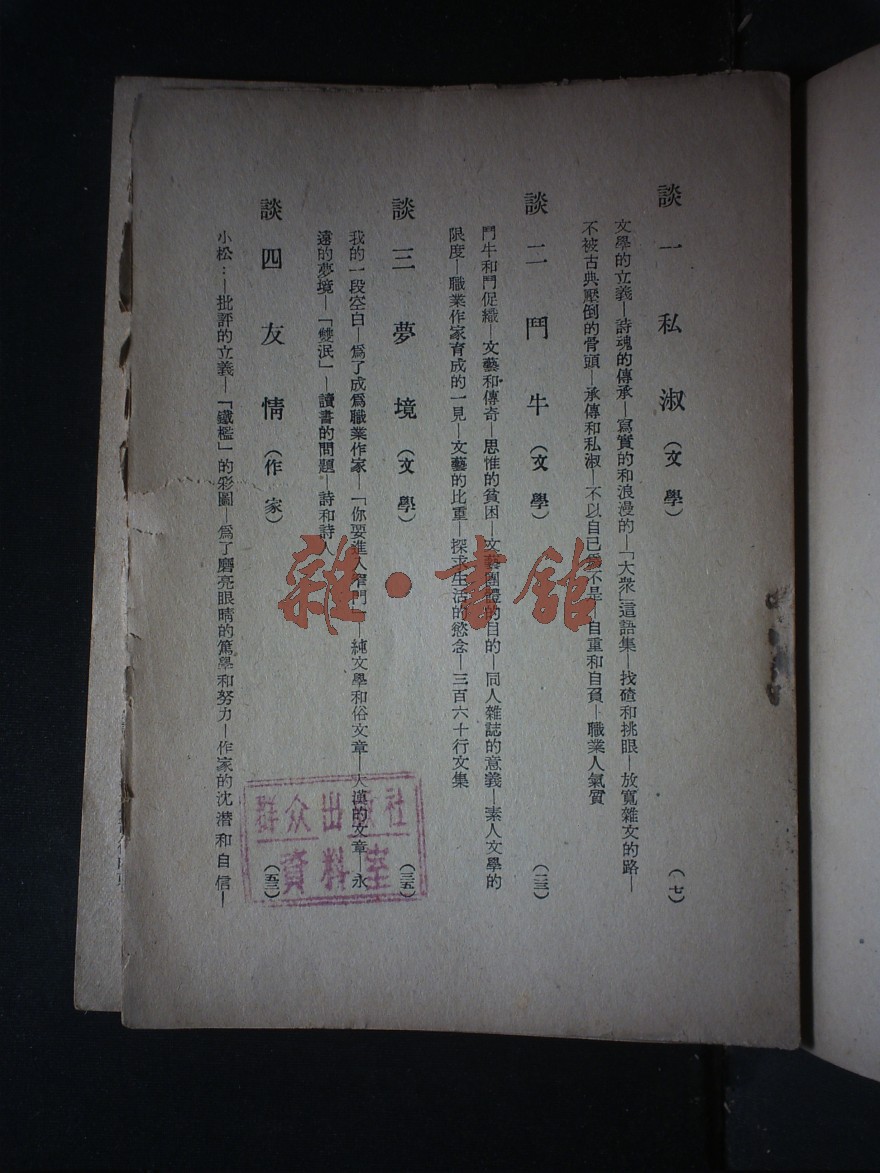 談一 私淑(文學) (一七)
文學的立義—詩魂的傳承—寫實的和浪漫的—「大衆」這語集—找碴和挑眼—放寬雜文的路—
不被古典壓倒的骨頭—承傳和私淑—不以自已爲不是—自重和自負—職業人氣質
談二 鬥牛(文學) (二三)
鬥牛和鬥促織—文藝和傳奇—思惟的貧困—文藝團體的目的—同人雜誌的意義—素人文學的
限度—職業作家育成的一見—文藝的比重—探求生活的慾念—三百六十行文集
談三 夢境(文學) (三五)
我的一段空白—爲了成爲職業作家—「你要進入窄門」—純文學和俗文章—大漢的文章—永
遠的夢境—「雙泯」—讀書的問題—詩和詩人
談四 友情(作家) (五三)
小松:—批評的立義—「鐵檻」的彩圖—爲了磨亮眼睛的篤學和努力—作家的沈潛和自信—
雜·書館
群众出版社
資料室